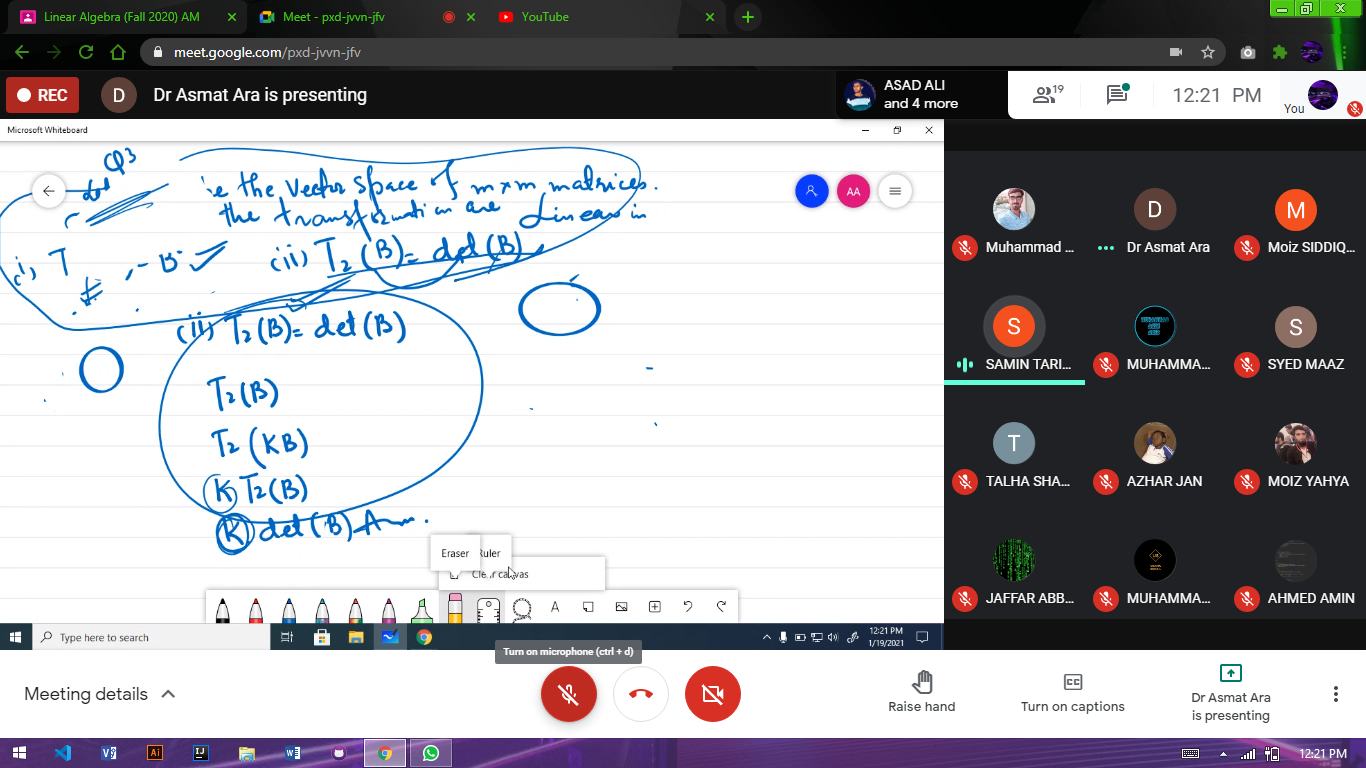 Linear Algebra (Fall 2020) AM
Meet - pxd-jvvn-jfv
YouTube
meet.google.com/pxd-jvvn-jfv
REC
D
Dr Asmat Ara is presenting
ASAD ALI
and 4 more
19
12:21 PM
You
Microsoft Whiteboard
AA
Q3
the vector space of m×m matrices.
the transformation are Linear in
(i) T
(ii) T₂(B)= det(B)
(ii) T₂(B)= det(B)
T₂(B)
T₂(KB)
K T₂(B)
K det(B) A
Eraser
Ruler
Clear canvas
A
Type here to search
12:21 PM
1/19/2021
Turn on microphone (ctrl + d)
Muhammad ...
D
Dr Asmat Ara
M
Moiz SIDDIQ...
S
SAMIN TARI...
MUHAMMA...
S
SYED MAAZ
T
TALHA SHA...
AZHAR JAN
MOIZ YAHYA
JAFFAR ABB...
MUHAMMA...
AHMED AMIN
Meeting details
Raise hand
CC
Turn on captions
Dr Asmat Ara
is presenting
Ai
IJ
W
12:21 PM